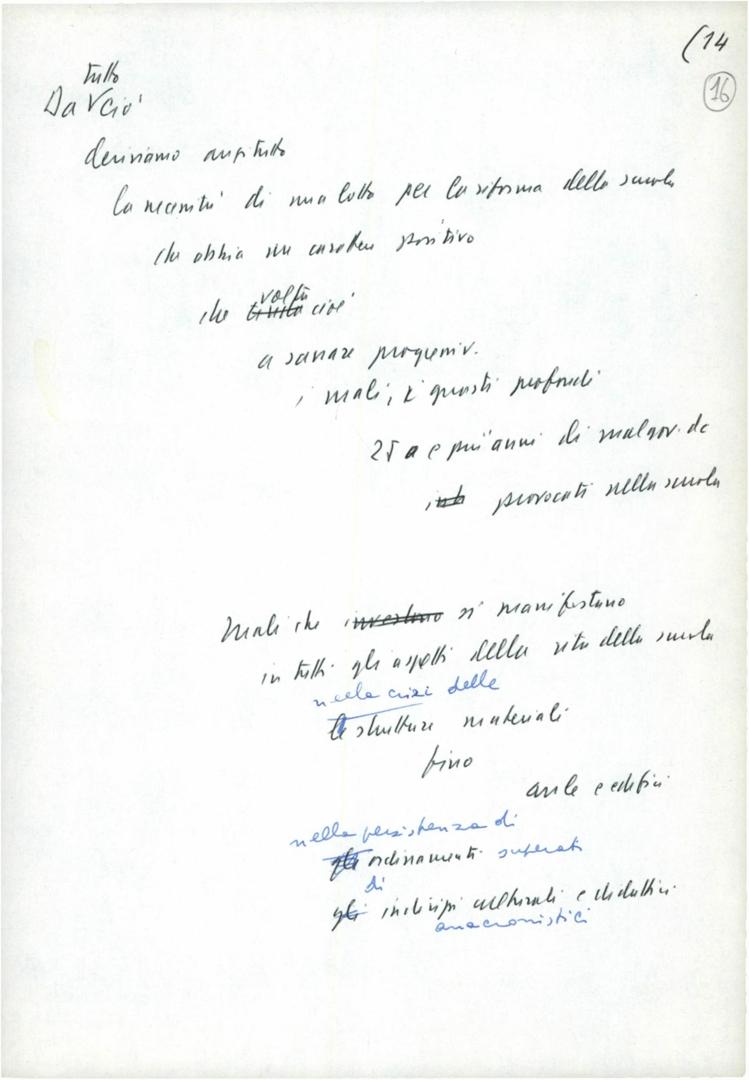 (14
16
tutto
Da V ciò
deriviamo anzitutto
la necessità di una lotta per la riforma della scuola
che abbia un carattere positivo
volta
che cioè
a sanare progressiv.
i mali, i guasti profondi
25 a e più anni di malgov. dc
provocati nella scuola
Mali che investono si manifestano
in tutti gli aspetti della vita della scuola
nella crisi delle
le strutture materiali
fino
aule e edifici
nella persistenza di
gli ordinamenti superati
di
gli indirizzi culturali e didattici
anacronistici